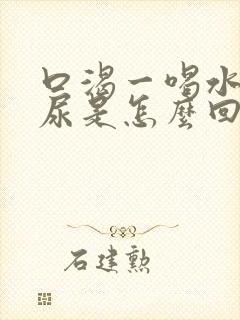 口渴一喝水
尿是怎麼回
石建勲